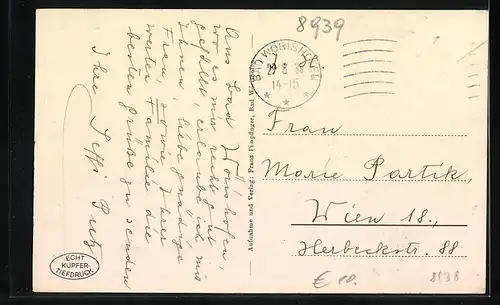 8939
Aus Bad Wörishofen,
wo es mir recht gut
gefällt, erlaube ich mir
Ihnen, liebe gnädige
Frau, sowie Ihrer
werten Familie die
besten Grüße zu senden
Ihre Seffi Putz
ECHT
KUPFER-
TIEFDRUCK
Aufnahme und Verlag: Franz Flugdinger, Bad Wörishofen
BAD WÖRISHOFEN
14-15
Frau
Marie Partik,
Wien 18.,
Herbeckstr. 88
8938